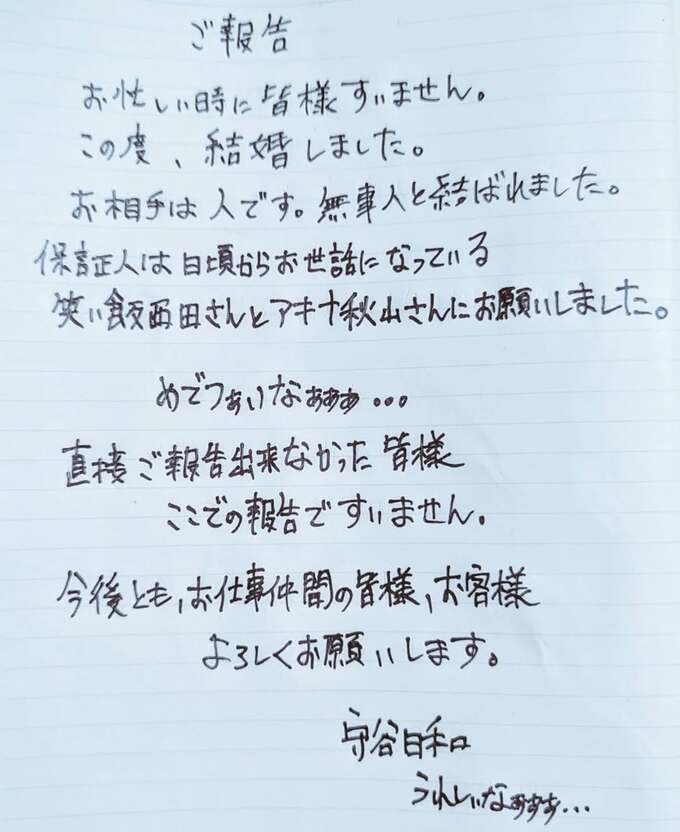 ご報告
お忙しい時に皆様すいません。
この度、結婚しました。
お相手は人です。無事人と結ばれました。
保証人は日頃からお世話になっている
笑い飯西田さんとアキナ秋山さんにお願いしました。
めでつぁいなぁぁぁ…
直接ご報告出来なかった皆様
ここでの報告ですいません。
今後とも、お仕事仲間の皆様、お客様
よろしくお願いします。
守谷日和
うれしいなぁぁぁ…